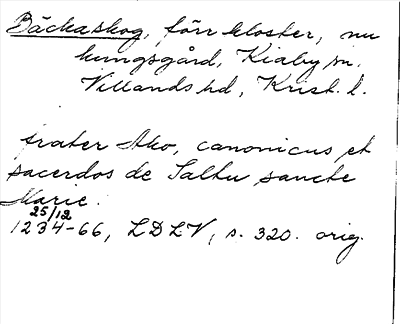 Bäckaskog, förr kloster, nu
kungsgård, Kiaby sn.
Villands hd, Krist. l.
frater Ako, canonicus et
sacerdos de Saltu sancte
Marie.
25/12
1234-66, LDLV, s. 320. orig.